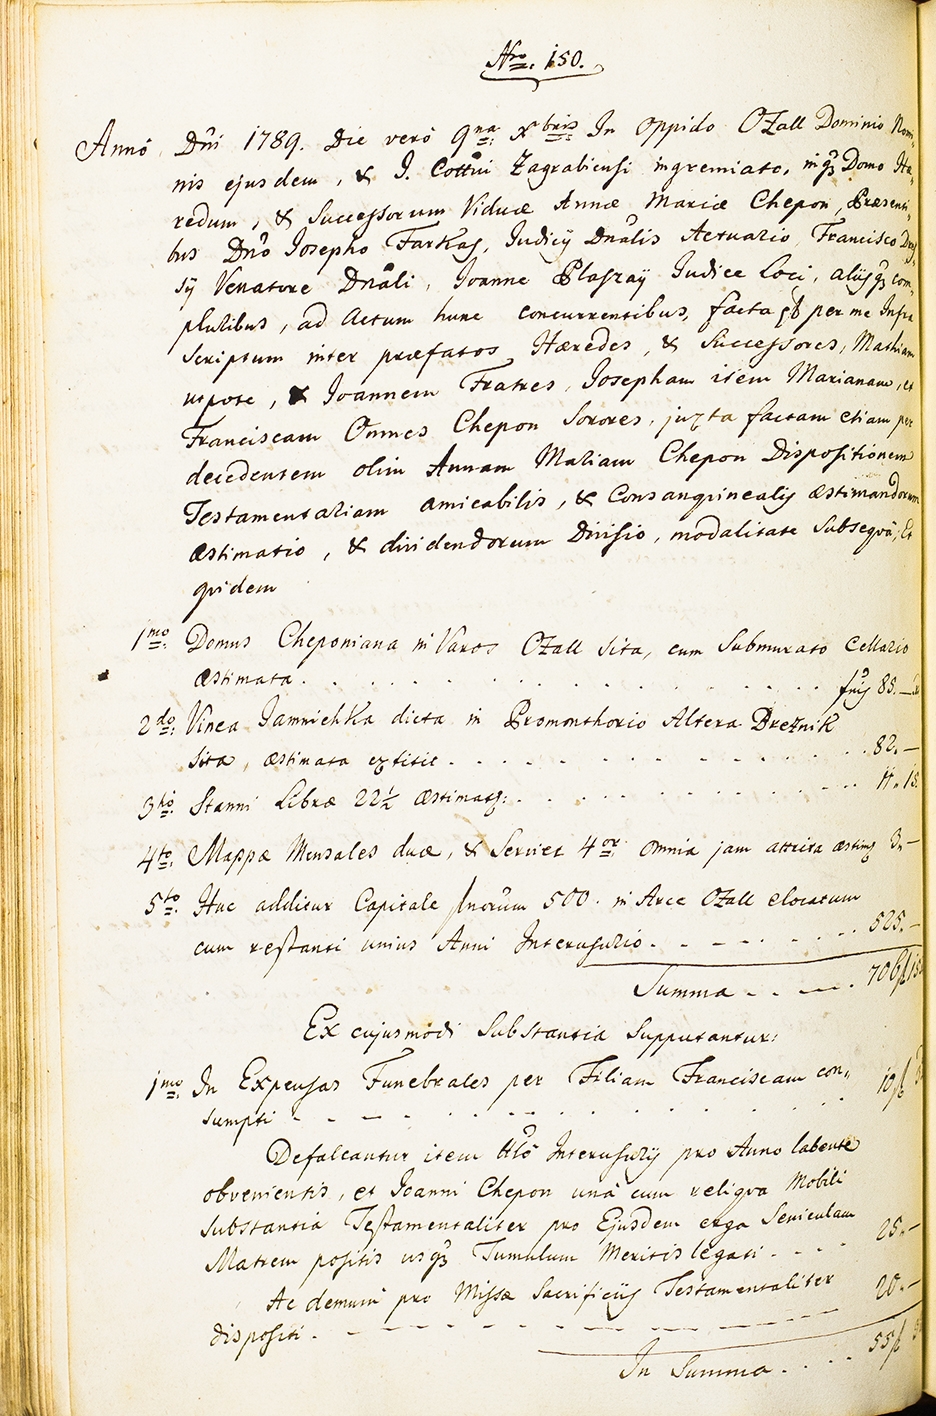 Nro. 150.
Annô Dni 1789. Die verô 9na xbris In Oppido Ozall Dominio Nomi-
nis ejusdem, & I. Cottui Zagrabiensi ingremiato, inqz Domo Hæ-
redum, & Successorum Viduæ Annæ Mariæ Chepon, Præsenti-
bus Dno Iosepho Farkas, Iudicij Dnalis Actuario, Francisco
sÿ Venatore Dnali, Ioanne Plaszaÿ Iudice Loci, alijsqz com-
pluribus, ad Actum hunc concurrentibus, facta est per me Infra
scriptum inter præfatos Hæredes, & Successores, Mathiam
utpote, & Ioannem Fratres, Iosepham item Marianam, et
Franciscam Omnes Chepon Sorores, juxta factam etiam per
decedentem olim Annam Mariam Chepon Dispositionem
Testamentariam amicabilis, & Consanguinealis æstimandorum
æstimatio, & dividendorum Divisio, modalitate Subseqvâ, Et
qvidem
1mo: Domus Cheponiana in Varos Ozall Sita, cum Submurato Cellario
æstimata. . . . . . . . . . . . . . fnis 85.—
2do: Vinea Iamnichka dicta in Promonthorio Altera Dreznik
Sita, æstimata extitit - . . . . . . . . . . 82.—
3tio: Stanni Libræ 22½ æstimatæ: . . . . . . . . . 11. 15.
4to: Mappæ Mensales duæ, & Serviet 4or: omnia jam attrita æstim 3.—
5to: Huc additur Capitale fnorum 500. in Arce Ozall elocatum
cum restanti unius Anni Interusurio. - - . . . . 525.—
Summa - - - - . 706f 15
Ex cujusmodi Substantia Supputantur:
1mo: In Expensas Funebrales per Filiam Franciscam con-
sumpti - - - - . . . . . . . . . 10f
Defalcantur item ttlô Interusurij pro Anno labente
obvenientis, et Ioanni Chepon unâ cum reliqva Mobili
Substantiâ Testamentaliter pro Ejusdem erga Seniculam
Matrem positis usqz Tumulum Meritis legati. - - - 25.—
Ac demum pro Missæ Sacrificijs Testamentaliter
dispositi. - - - - - - - - - 20.—
In Summa. . . . . 55f